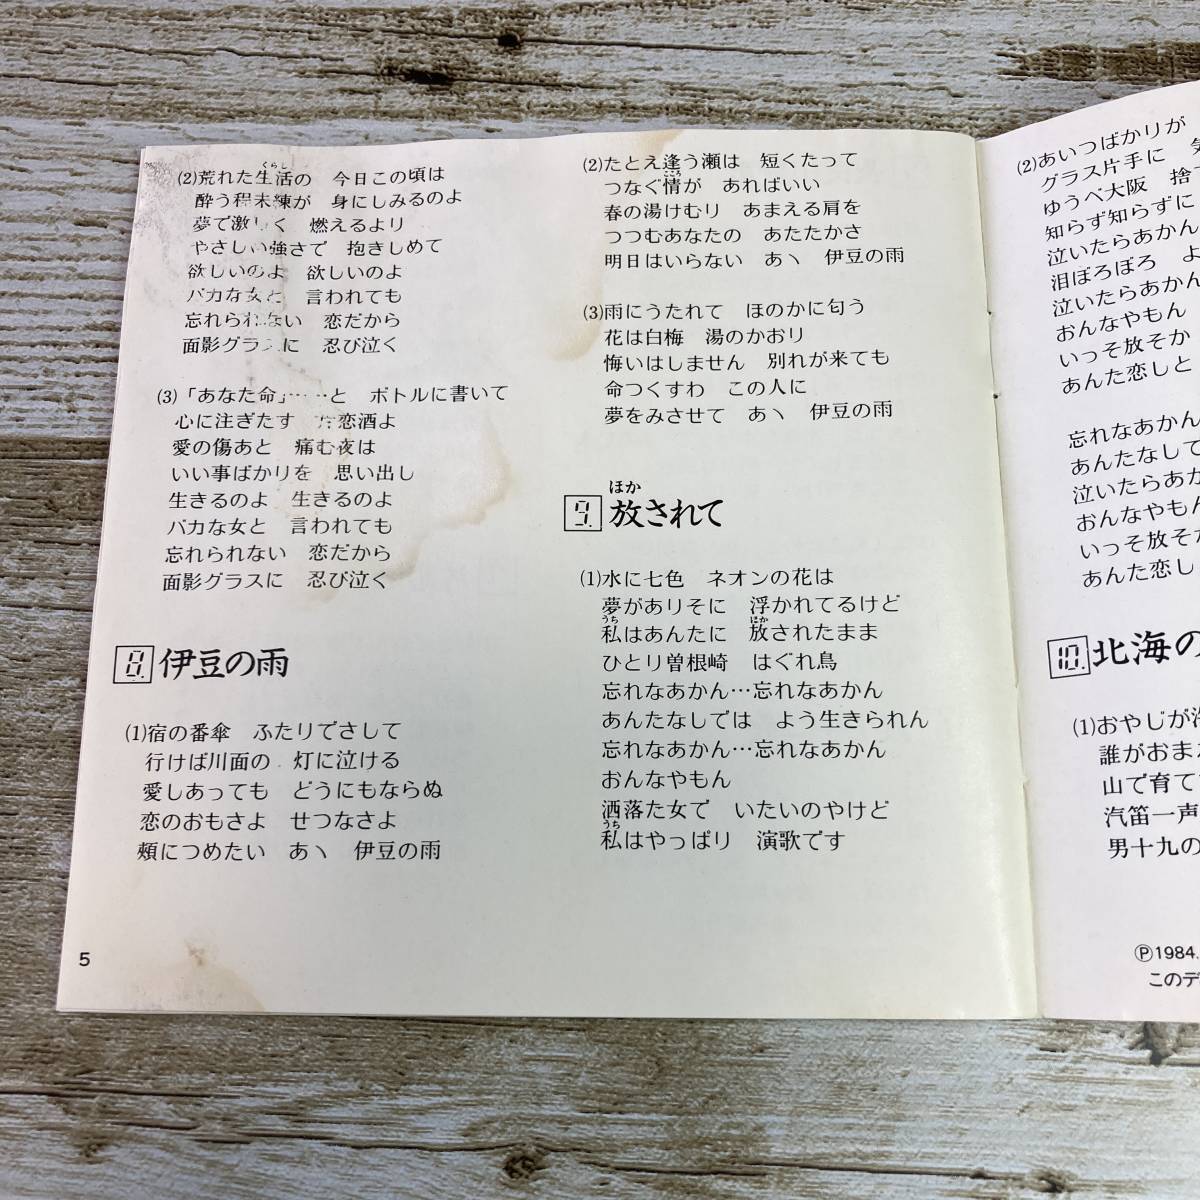 くらし
(2)荒れた生活の 今日この頃は
酔う程未練が 身にしみるのよ
夢で激しく 燃えるより
やさしい強さで 抱きしめて
欲しいのよ 欲しいのよ
バカな女と 言われても
忘れられない 恋だから
面影グラスに 忍び泣く
(3)「あなた命」……と ボトルに書いて
心に注ぎたす 恋酒よ
愛の傷あと 痛む夜は
いい事ばかりを 思い出し
生きるのよ 生きるのよ
バカな女と 言われても
忘れられない 恋だから
面影グラスに 忍び泣く
8. 伊豆の雨
(1)宿の番傘 ふたりでさして
行けば川面の 灯に泣ける
愛しあっても どうにもならぬ
恋のおもさよ せつなさよ
頬につめたい あヽ 伊豆の雨
5
(2)たとえ逢う瀬は 短くたって
こころ
つなぐ情が あればいい
春の湯けむり あまえる肩を
つつむあなたの あたたかさ
明日はいらない あヽ 伊豆の雨
(3)雨にうたれて ほのかに匂う
花は白梅 湯のかおり
悔いはしません 別れが来ても
命つくすわ この人に
夢をみさせて あヽ 伊豆の雨
ほか
9. 放されて
(1)水に七色 ネオンの花は
夢がありそに 浮かれてるけど
うち ほか
私はあんたに 放されたまま
ひとり曽根崎 はぐれ鳥
忘れなあかん…忘れなあかん
あんたなしでは よう生きられん
忘れなあかん…忘れなあかん
おんなやもん
洒落た女で いたいのやけど
うち
私はやっぱり 演歌です
(2)あいつばかりが
グラス片手に
ゆうべ大阪 捨て
知らず知らずに
泣いたらあかん
泪ぼろぼろ よ
泣いたらあかん
おんなやもん
いっそ放そか
あんた恋しと
忘れなあかん
あんたなしで
泣いたらあか
おんなやもん
いっそ放そか
あんた恋し
10. 北海の
(1)おやじが
誰がおまえ
山で育て
汽笛一声
男十九の
Ⓟ1984.
このデ